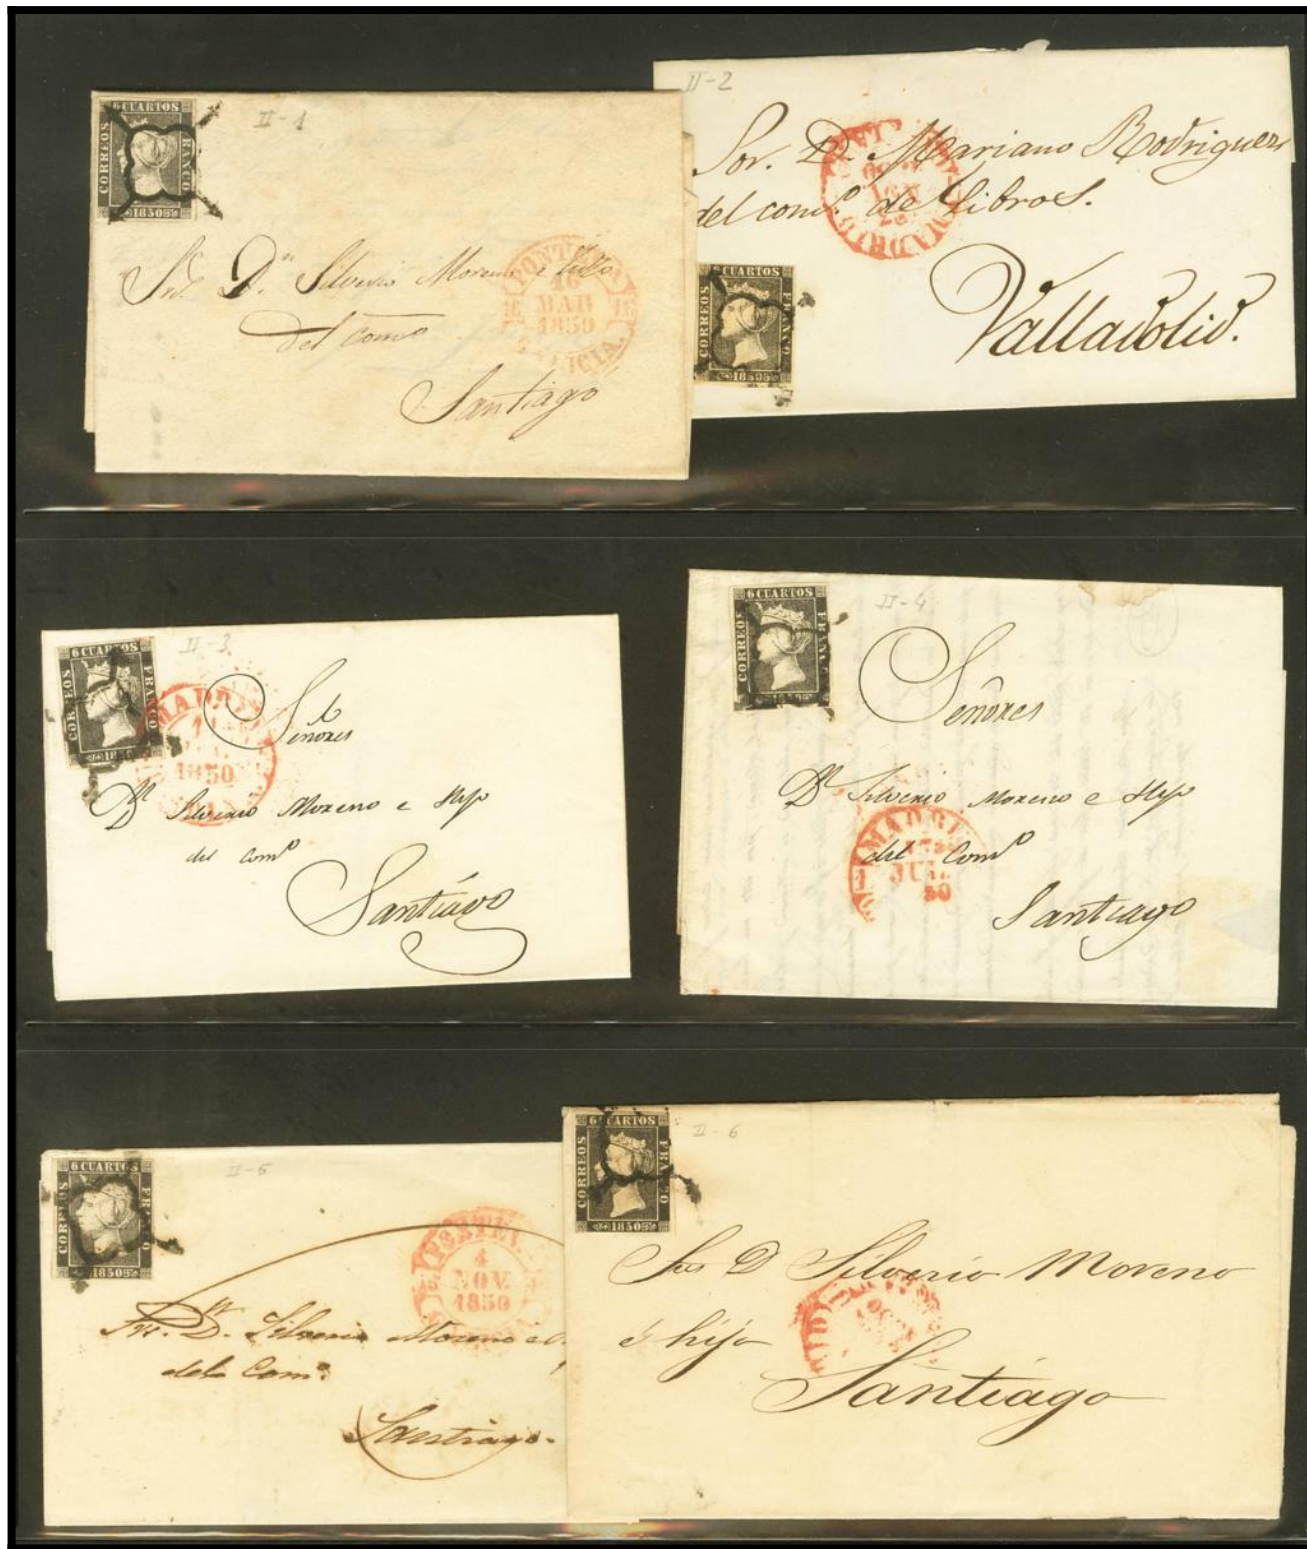 II-1
6 CUARTOS
CORREOS
FRANCO
1850
Sres. Dn. Silverio Moreno e hijo
del Como
Santiago
16
MAR
1850
II-2
Sor. Dn. Mariano Rodriguez
del como. de Libros.
Valladolid.
MADRID
6 CUARTOS
CORREOS
FRANCO
1850
II-3
6 CUARTOS
CORREOS
FRANCO
MADRID
1850
Señores
Dn Silverio Moreno e Hijo
del Como
Santiago
II-4
6 CUARTOS
CORREOS
FRANCO
1850
Señores
Dn Silverio Moreno e Hijo
del Como
Santiago
MADRID
JUL
50
II-5
6 CUARTOS
CORREOS
FRANCO
1850
4
NOV.
1850
Sres. Dn. Silverio Moreno e
del Como.
Santiago.
II-6
6 CUARTOS
CORREOS
FRANCO
1850
Sres D Silverio Moreno
é hijo
Santiago